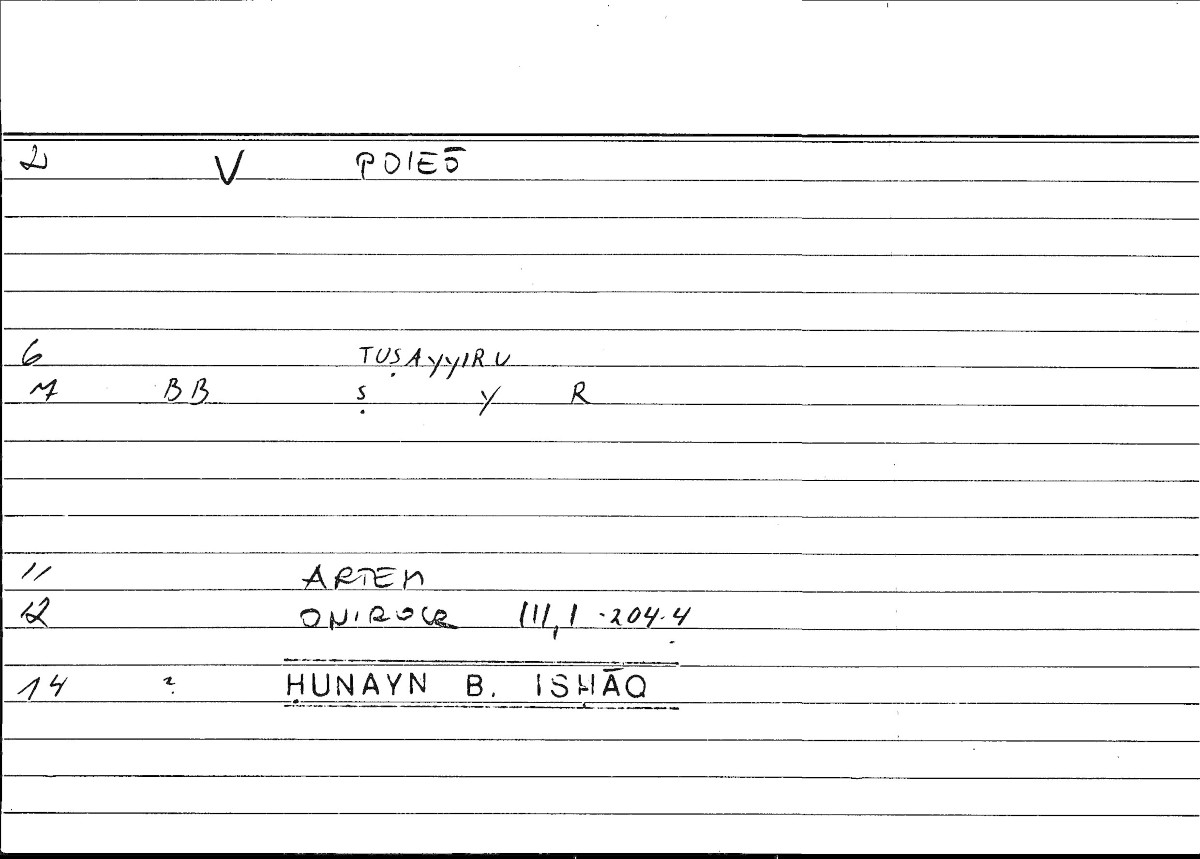 2 V POIEŌ
6 TUṢAYYIRU
7 BB Ṣ Y R
11 ARTEM
12 ONIROCR III,1 ·204·4
14 ? ḤUNAYN B. ISḤĀQ